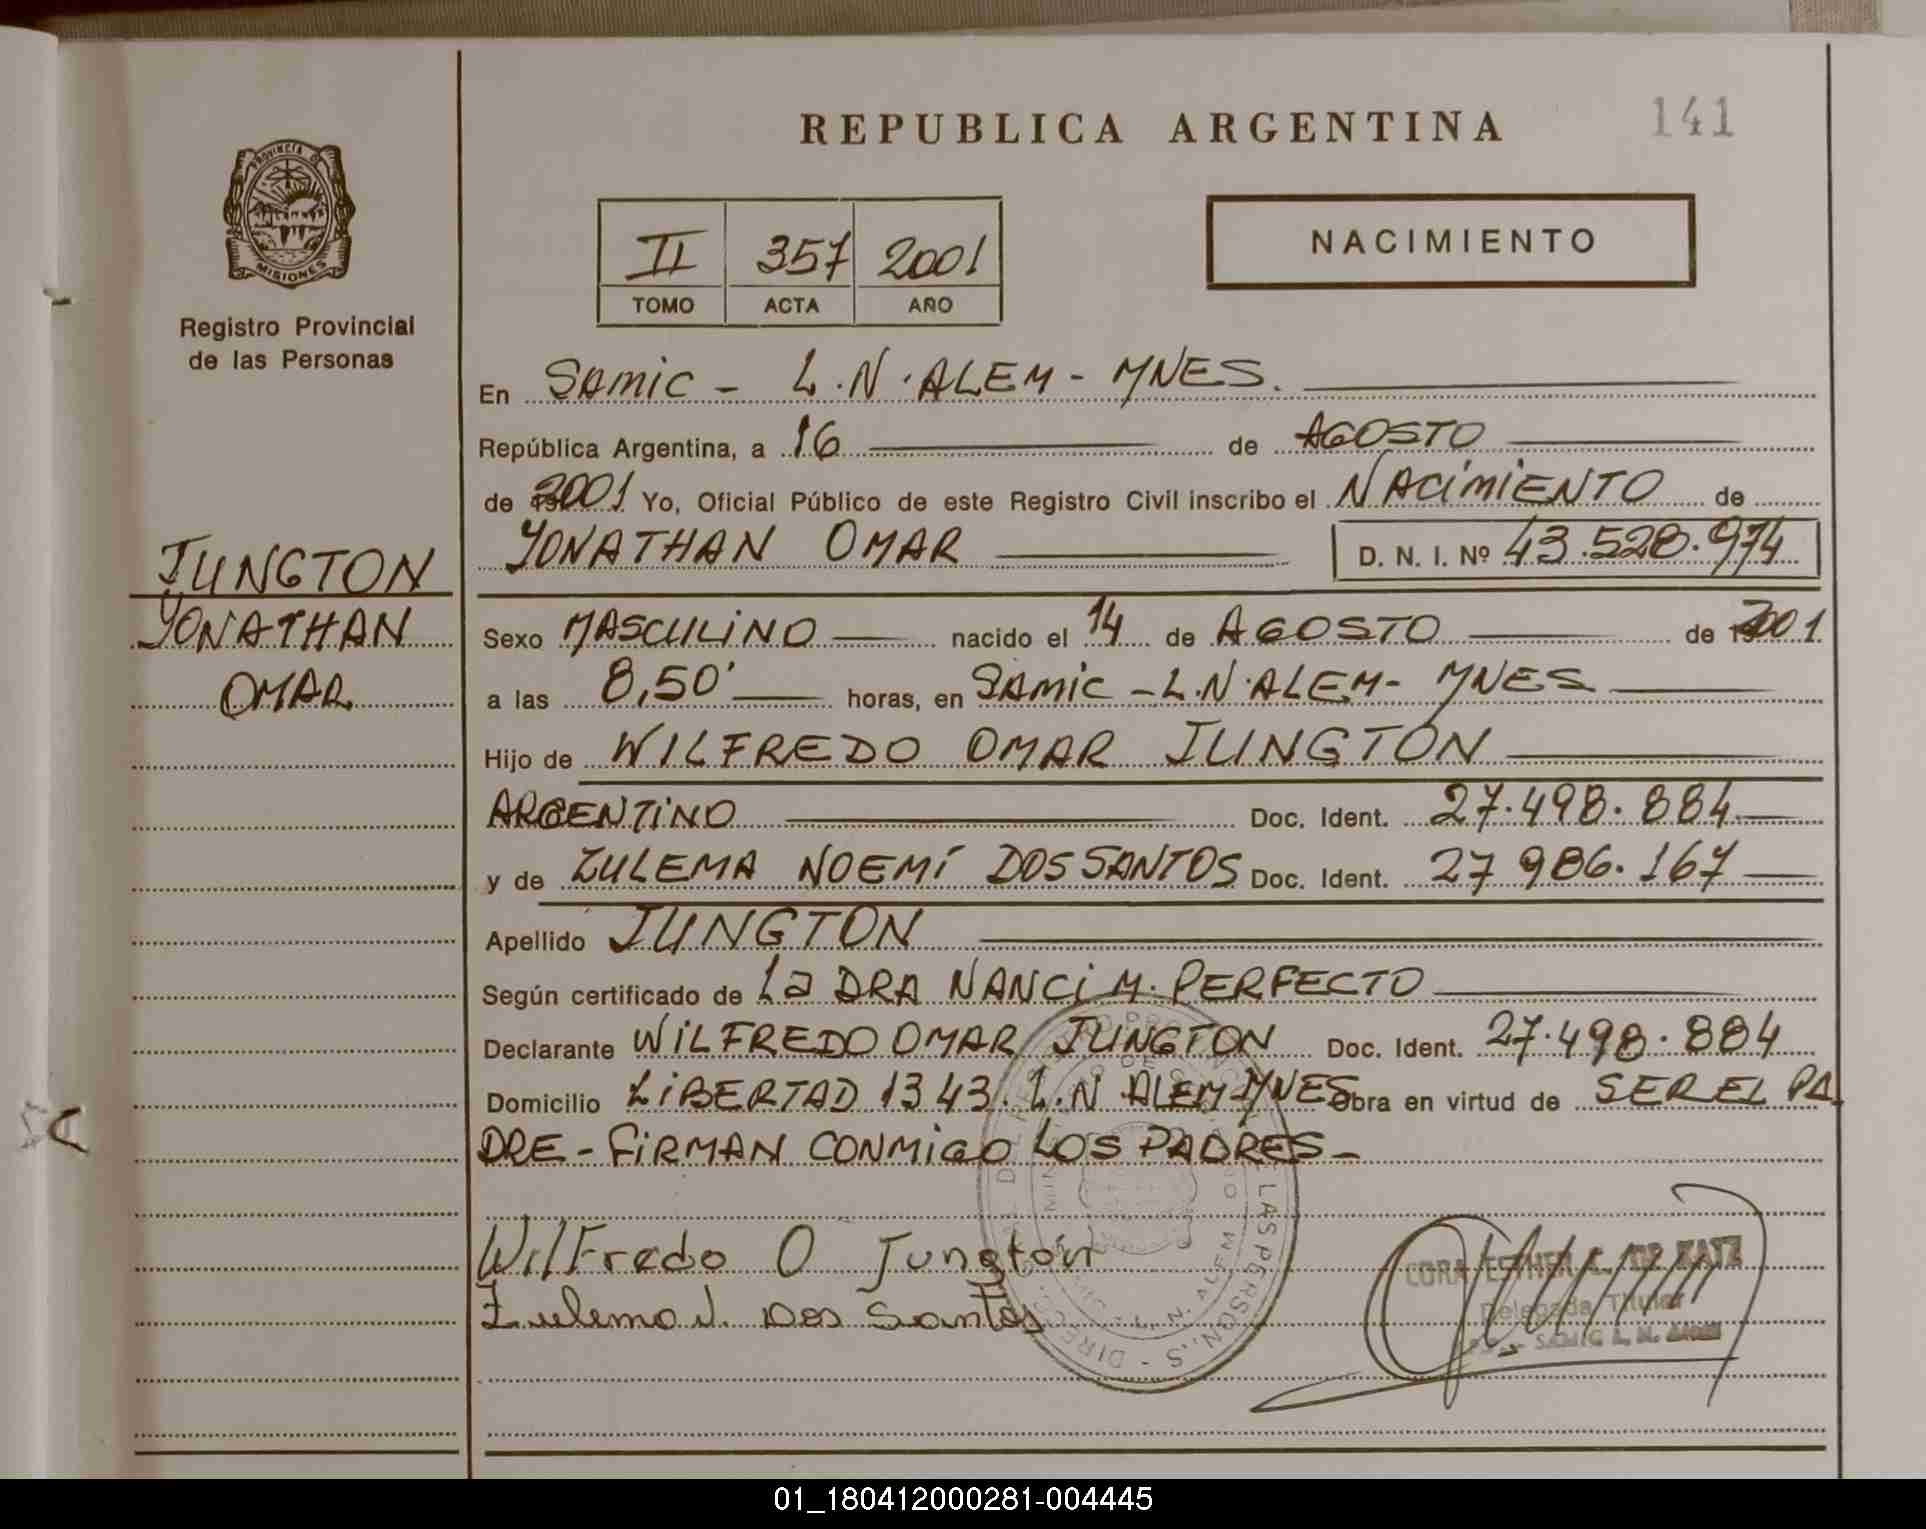 REPUBLICA ARGENTINA
141
PROVINCIA DE MISIONES
Registro Provincial
de las Personas
II 357 2001
TOMO ACTA AÑO
NACIMIENTO
En SAMIC - L.N.ALEM - MNES.
República Argentina, a 16 de AGOSTO
de 2001 Yo, Oficial Público de este Registro Civil inscribo el NACIMIENTO de
YONATHAN OMAR D. N. I. Nº 43.528.974
JUNGTON
YONATHAN
OMAR
Sexo MASCULINO nacido el 14 de AGOSTO de 2001
a las 8,50' horas, en SAMIC - L.N.ALEM - MNES
Hijo de WILFREDO OMAR JUNGTON
ARGENTINO Doc. Ident. 27.498.884
y de ZULEMA NOEMÍ DOS SANTOS Doc. Ident. 27 986.167
Apellido JUNGTON
Según certificado de La DRA NANCI M. PERFECTO
Declarante WILFREDO OMAR JUNGTON Doc. Ident. 27.498.884
Domicilio LIBERTAD 1343. L.N ALEM MNES obra en virtud de SER EL PA
DRE - FIRMAN CONMIGO LOS PADRES -
Wilfredo O Jungton
Zulema N. Dos Santos
CORA ESTHER
Delegada Titular
SAMIC L. N. ALEM
01_180412000281-004445